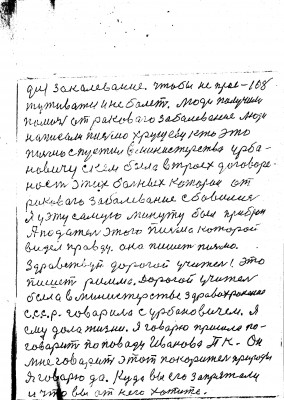 ди) Заколевание. Чтобы не прос- 108
туживати и не болет. Люди получили
помочь от раковаго заболевание люди
написали писмо хрущеву кто это
писмо спустил в министерства урба-
новичу скем была втроех договоре-
ност этих болных которои от
раковаго заболивание сбовился
Я уэту самую минуту был
Я подател этого писма которой
видел правду. она пишет писмо.
Здравствуй дорогой учител! это
пишет римма. дорогой учител
была в министерстве здравохронение
с.с.с.р. говорила с урбановичем. Я
ему дола жизни. Я говорю пришла по-
говарит по поводу Иванова П.К. Он
мне говорит этот покорител природы
Я говорю да. Куда вы его запрятали
и что вы от него хотите.